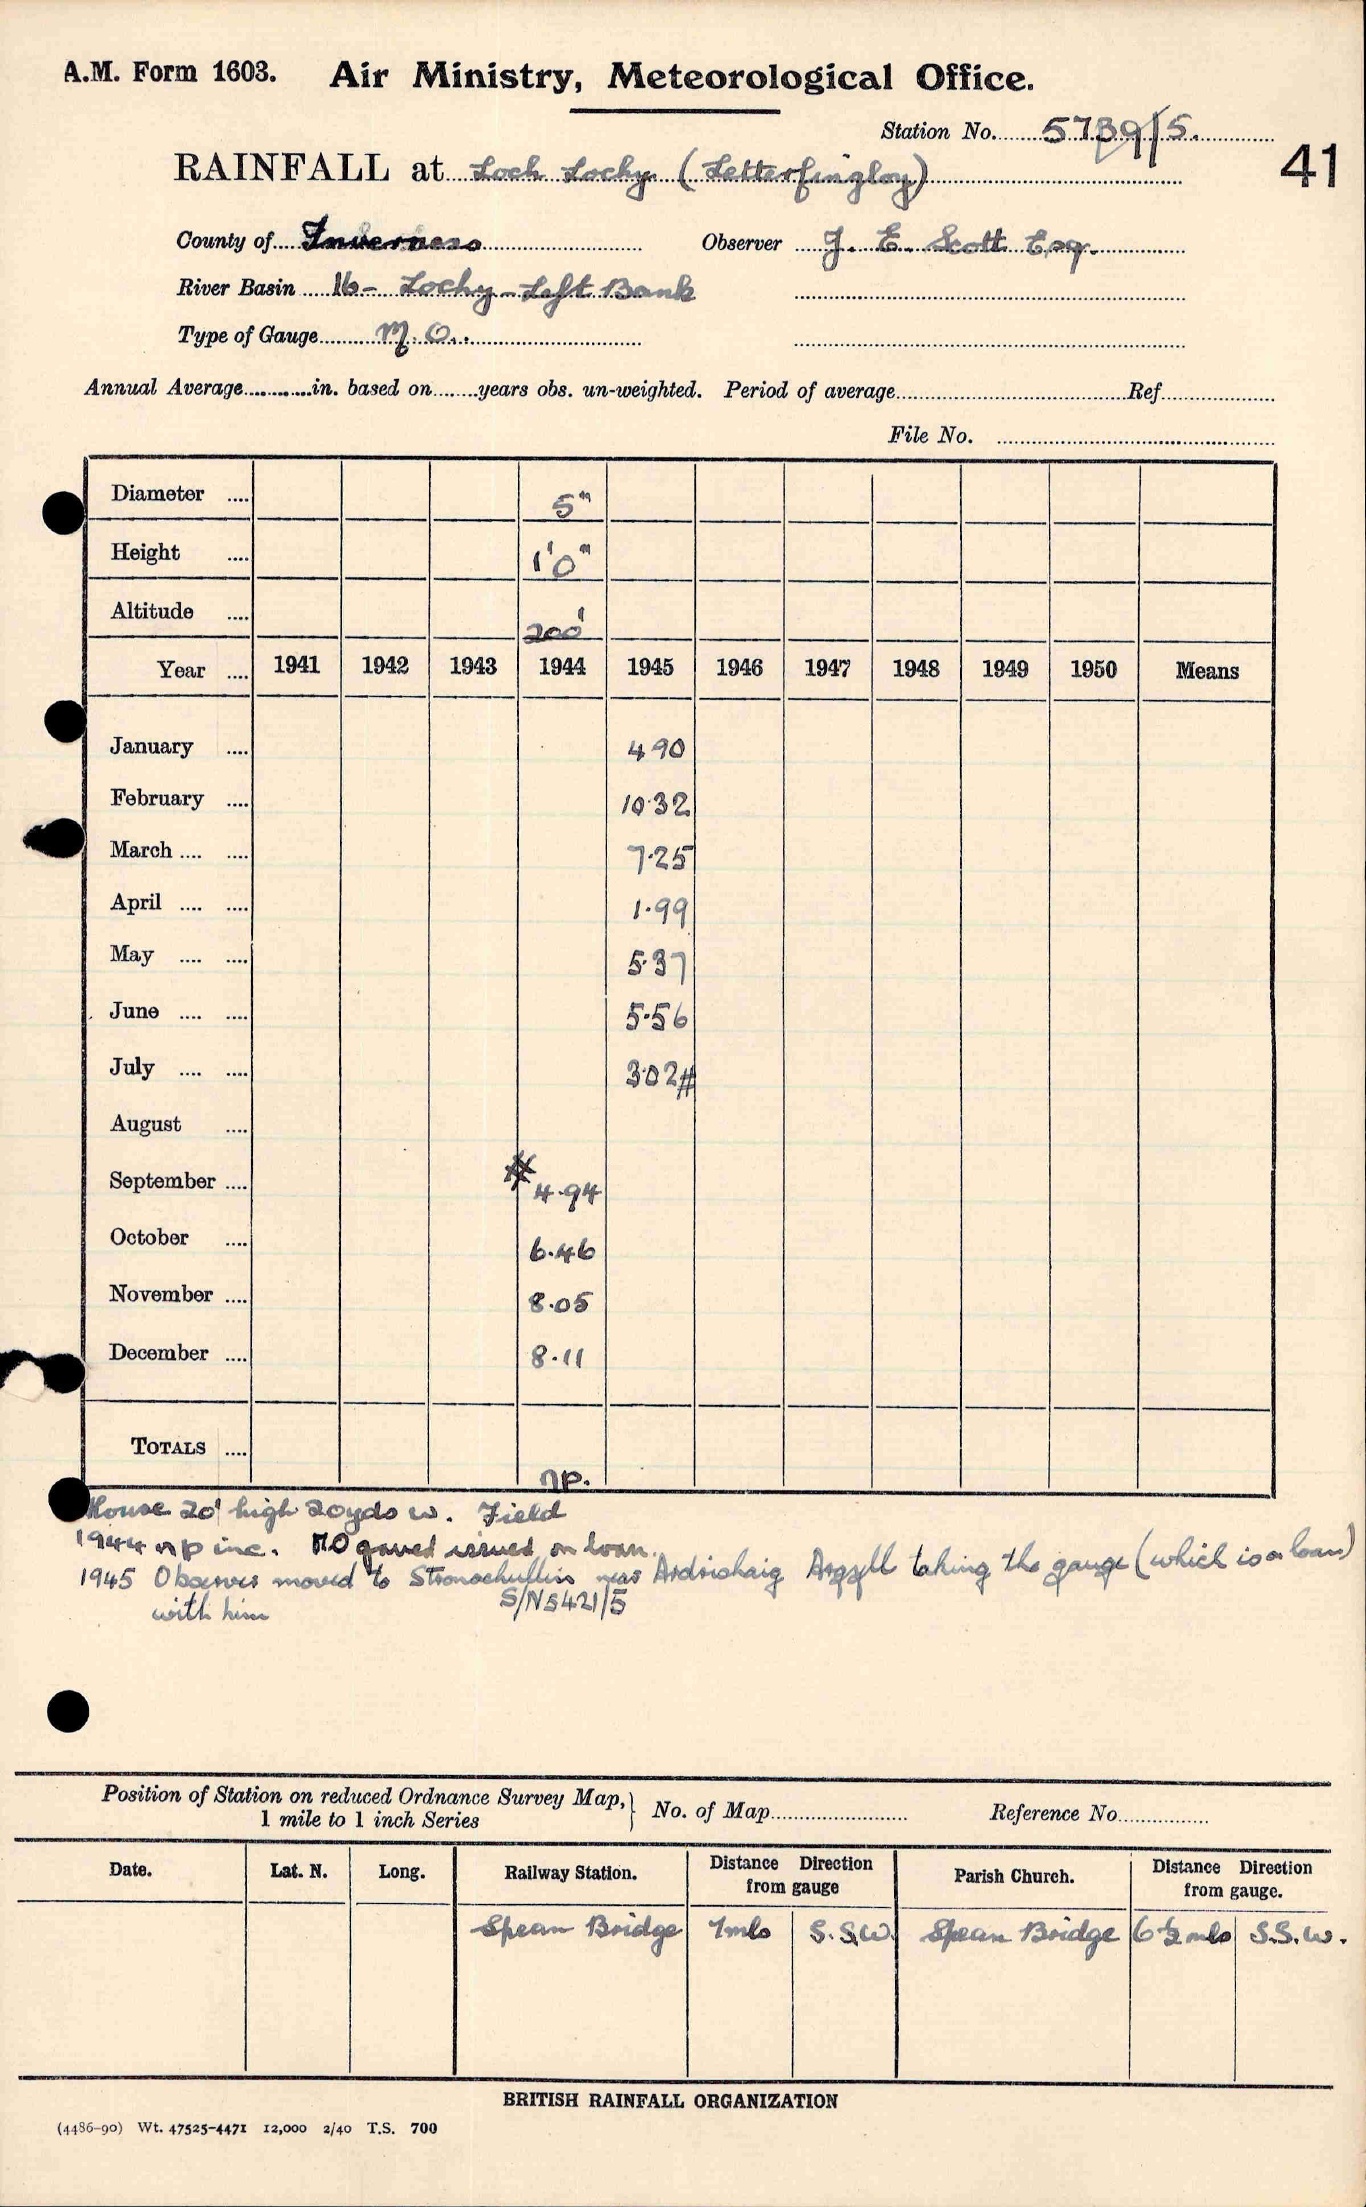 A.M. Form 1603. Air Ministry, Meteorological Office.
Station No. 5739/5.
41
RAINFALL at Loch Lochy (Letterfinglay)
County of Inverness Observer J. E. Scott Esq.
River Basin 16- Lochy - Left Bank
Type of Gauge M.O.
Annual Average in. based on years obs. un-weighted. Period of average Ref
File No.
Diameter 5"
Height 1'0"
Altitude 200'
Year 1941 1942 1943 1944 1945 1946 1947 1948 1949 1950 Means
January 4.90
February 10.32
March 7.25
April 1.99
May 5.37
June 5.56
July 3.02#
August
September # 4.94
October 6.46
November 8.05
December 8.11
TOTALS np.
House 20' high 20yds w. Field
1944 np inc. MO issued on loan.
1945 Observer moved to near Ardrishaig Argyll taking the gauge (which is a loan)
with him S/N5421/5
Position of Station on reduced Ordnance Survey Map,
1 mile to 1 inch Series
No. of Map Reference No.
Date. Lat. N. Long. Railway Station. Distance Direction from gauge Parish Church. Distance Direction from gauge.
Spean Bridge 7mls S.S.W. Spean Bridge 6½ mls S.S.W.
BRITISH RAINFALL ORGANIZATION
(4486-90) Wt. 47525-4471 12,000 2/40 T.S. 700